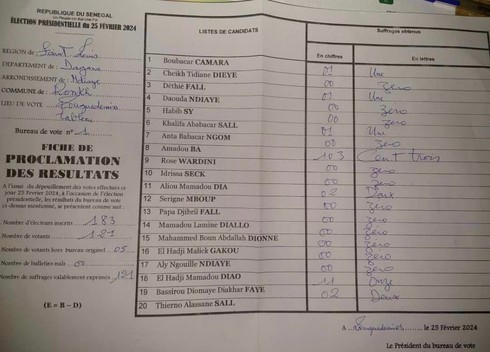 REPUBLIQUE DU SENEGAL
Un Peuple-Un But-Une Foi
ÉLECTION PRÉSIDENTIELLE du 25 FÉVRIER 2024
RÉGION de Saint Louis
DEPARTEMENT de : Dagana
ARRONDISSEMENT de : Ndiaye
COMMUNE de : Ronkh
LIEU DE VOTE
Bureau de vote n° 1
FICHE DE
PROCLAMATION
DES RESULTATS
A l'issue du dépouillement des votes effectués ce
jour 25 Février 2024, à l'occasion de l'élection
présidentielle, les résultats du bureau de vote
ci-dessus mentionné, se présentent comme suit :
Nombre d'électeurs inscrits 183
Nombre de votants 121
Nombre de votants hors bureau originel 05
Nombre de bulletins nuls 00
Nombre de suffrages valablement exprimés 121
(E = B – D)
LISTES DE CANDIDATS
Suffrages obtenus
En chiffres
En lettres
1 Boubacar CAMARA
2 Cheikh Tidiane DIEYE 01 Une
3 Déthié FALL 00 Zero
4 Daouda NDIAYE 01 Une
5 Habib SY 00 Zero
6 Khalifa Ababacar SALL 00 Zero
7 Anta Babacar NGOM 01 Une
8 Amadou BA 00 Zero
9 Rose WARDINI 103 Cent trois
10 Idrissa SECK 00 Zero
11 Aliou Mamadou DIA 00 Zero
12 Serigne MBOUP 02 Deux
13 Papa Djibril FALL 00 Zero
14 Mamadou Lamine DIALLO 00 Zero
15 Mahammed Boun Abdallah DIONNE 00 Zero
16 El Hadji Malick GAKOU 00 Zero
17 Aly Ngouille NDIAYE 00 Zero
18 El Hadji Mamadou DIAO 00 Zero
19 Bassirou Diomaye Diakhar FAYE 11 Onze
20 Thierno Alassane SALL 02 Deux
A le 25 Février 2024
Le Président du bureau de vote